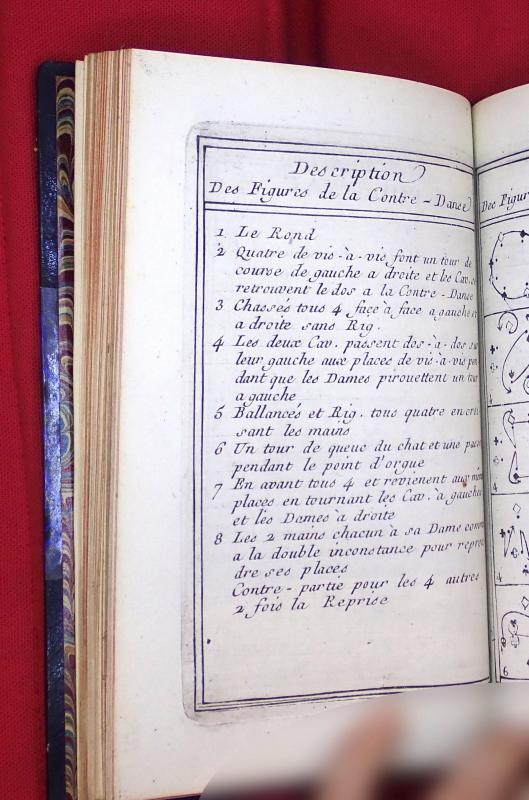 Description
Des Figures de la Contre-Dance
1 Le Rond
2 Quatre de vis-à-vis font un tour de
course de gauche a droite et les Cav. se
retrouvent le dos a la Contre-Dance
3 Chassés tous 4 face à face a gauche et
a droite sans Rig.
4 Les deux Cav. passent dos-a-dos sur
leur gauche aux places de vis-à-vis pen
dant que les Dames pirouettent un tour
a gauche
5 Ballancés et Rig. tous quatre en croi
sant les mains
6 Un tour de queue du chat et une
pendant le point d'orgue
7 En avant tous 4 et revienent aux
places en tournant les Cav. à gauche
et les Dames à droite
8 Les 2 mains chacun à sa Dame comme
a la double inconstance pour repren
dre ses places
Contre-partie pour les 4 autres
2 fois la Reprise
Des Figur
4
4
4
6